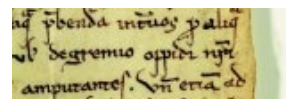 p̄benda intuos p aliq̄
ul̵ degremio oppidi nr̄i
amputantes. Vn̄ etiā ad